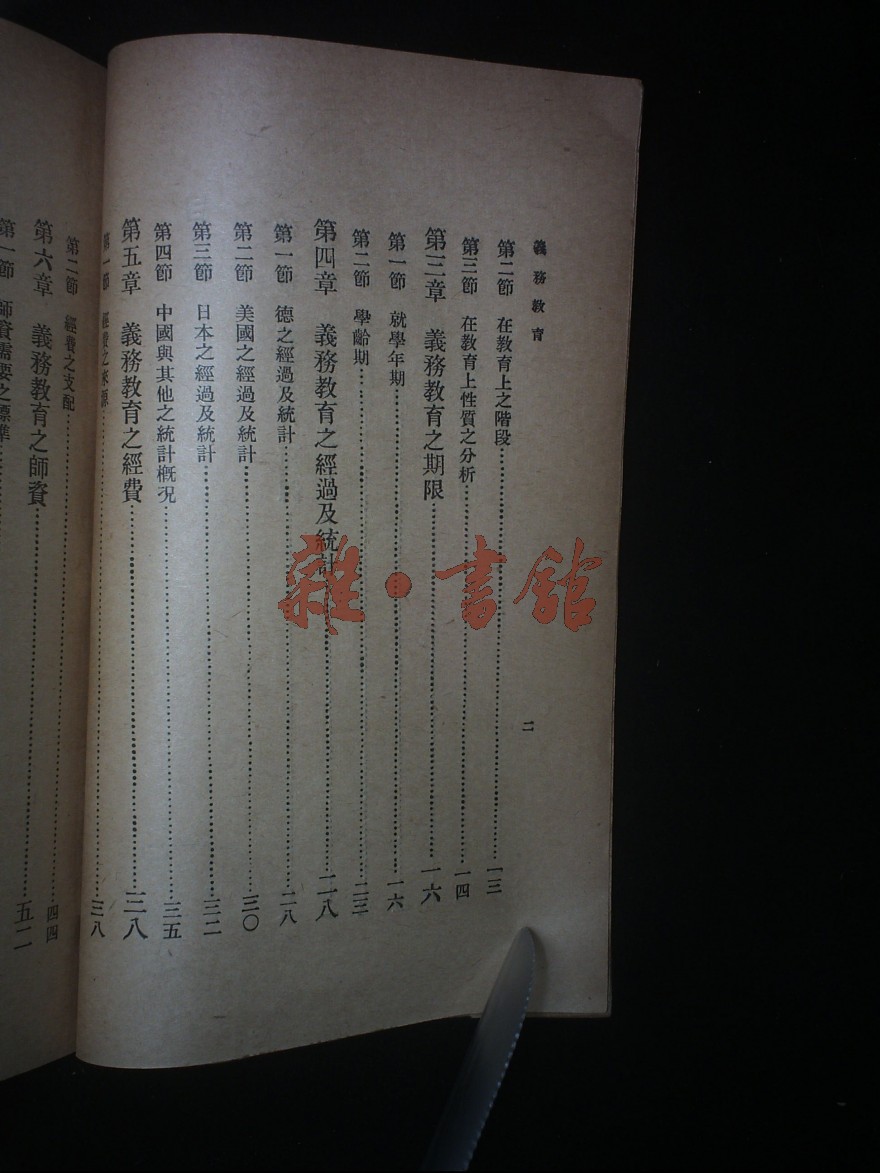 義務教育
二
第二節 在教育上之階段……一三
第三節 在教育上性質之分析……一四
第三章 義務教育之期限……一六
第一節 就學年期……一六
第二節 學齡期……二三
第四章 義務教育之經過及統計……二八
第一節 德之經過及統計……二八
第二節 美國之經過及統計……三〇
第三節 日本之經過及統計……三二
第四節 中國與其他之統計概況……三五
第五章 義務教育之經費……三八
第一節 經費之來源……三八
第二節 經費之支配……四四
第六章 義務教育之師資……五二
第一節 師資需要之標準……
雜·書館